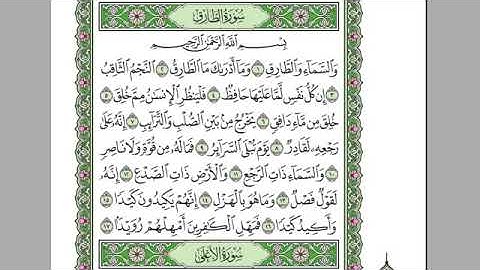 سُورَةُ الطَّارِقِ
بِسْمِ اللَّهِ الرَّحْمَٰنِ الرَّحِيمِ
وَالسَّمَاءِ وَالطَّارِقِ ١ وَمَا أَدْرَاكَ مَا الطَّارِقُ ٢ النَّجْمُ الثَّاقِبُ
٣ إِن كُلُّ نَفْسٍ لَّمَّا عَلَيْهَا حَافِظٌ ٤ فَلْيَنظُرِ الْإِنسَانُ مِمَّ خُلِقَ ٥
خُلِقَ مِن مَّاءٍ دَافِقٍ ٦ يَخْرُجُ مِن بَيْنِ الصُّلْبِ وَالتَّرَائِبِ ٧ إِنَّهُ عَلَىٰ
رَجْعِهِ لَقَادِرٌ ٨ يَوْمَ تُبْلَى السَّرَائِرُ ٩ فَمَا لَهُ مِن قُوَّةٍ وَلَا نَاصِرٍ
١٠ وَالسَّمَاءِ ذَاتِ الرَّجْعِ ١١ وَالْأَرْضِ ذَاتِ الصَّدْعِ ١٢ إِنَّهُ
لَقَوْلٌ فَصْلٌ ١٣ وَمَا هُوَ بِالْهَزْلِ ١٤ إِنَّهُمْ يَكِيدُونَ كَيْدًا ١٥
وَأَكِيدُ كَيْدًا ١٦ فَمَهِّلِ الْكَافِرِينَ أَمْهِلْهُمْ رُوَيْدًا ١٧
سُورَةُ الْأَعْلَىٰ